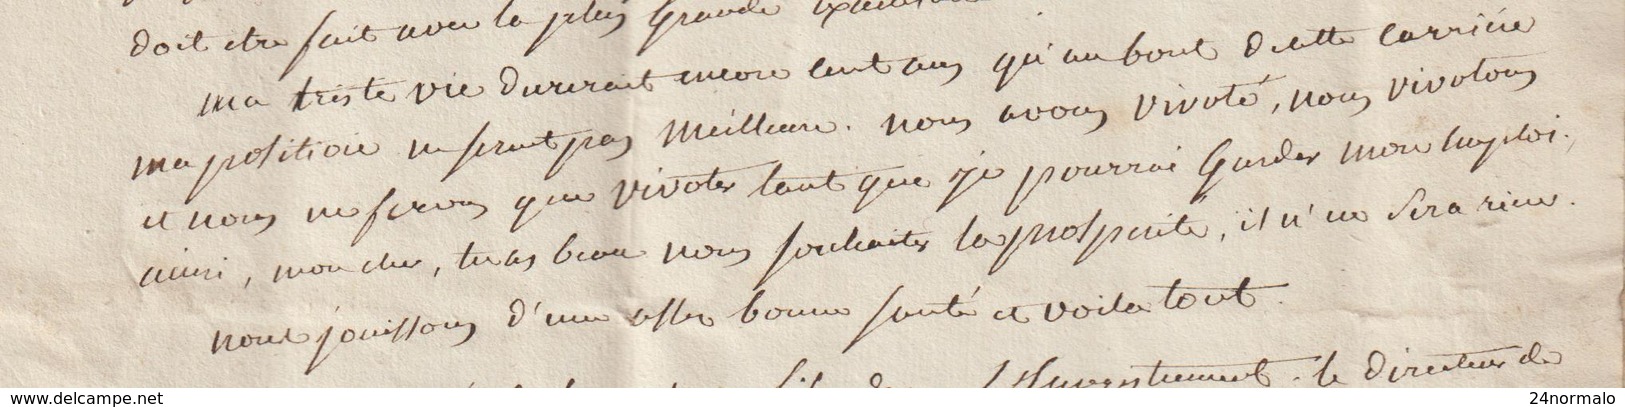 doit etre fait avec la plus Grande
ma triste vie durerait encore cent ans qu'au bout de cette carriere
ma position ne serait pas meilleure. nous avons vivoté, nous vivotons
et nous ne ferons que vivoter tant que je pourrai Garder mon Employ.
ainsi, mon cher, tu as beau nous souhaiter la prosperité, il n'en sera rien.
nous jouissons d'une assez bonne santé et voila tout.
le directeur de
www.delcampe.net
24normalo